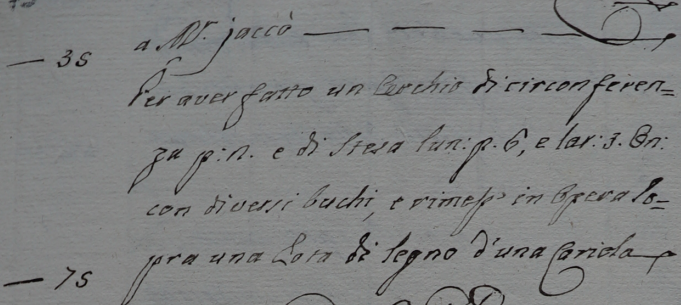 a Mr. jaccò
— 35
Per aver fatto un Cerchio di circonferen=
za p: n. e di Stesa lun: p. 6, e lar: 3. On:
con diversi buchi, e rimesso in Opera so=
pra una Rota di legno d'una Cariola
— 75